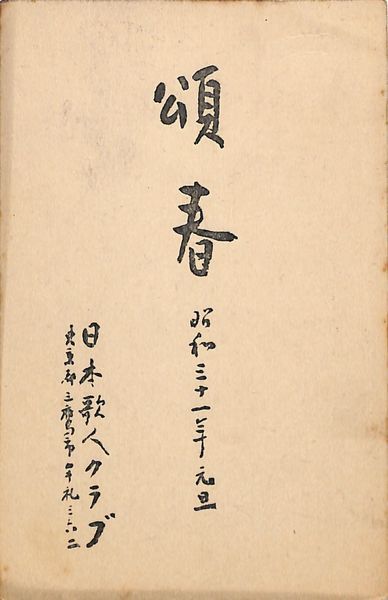 頌春
昭和三十一年 元旦
日本歌人クラブ
東京都三鷹市牟礼三六二